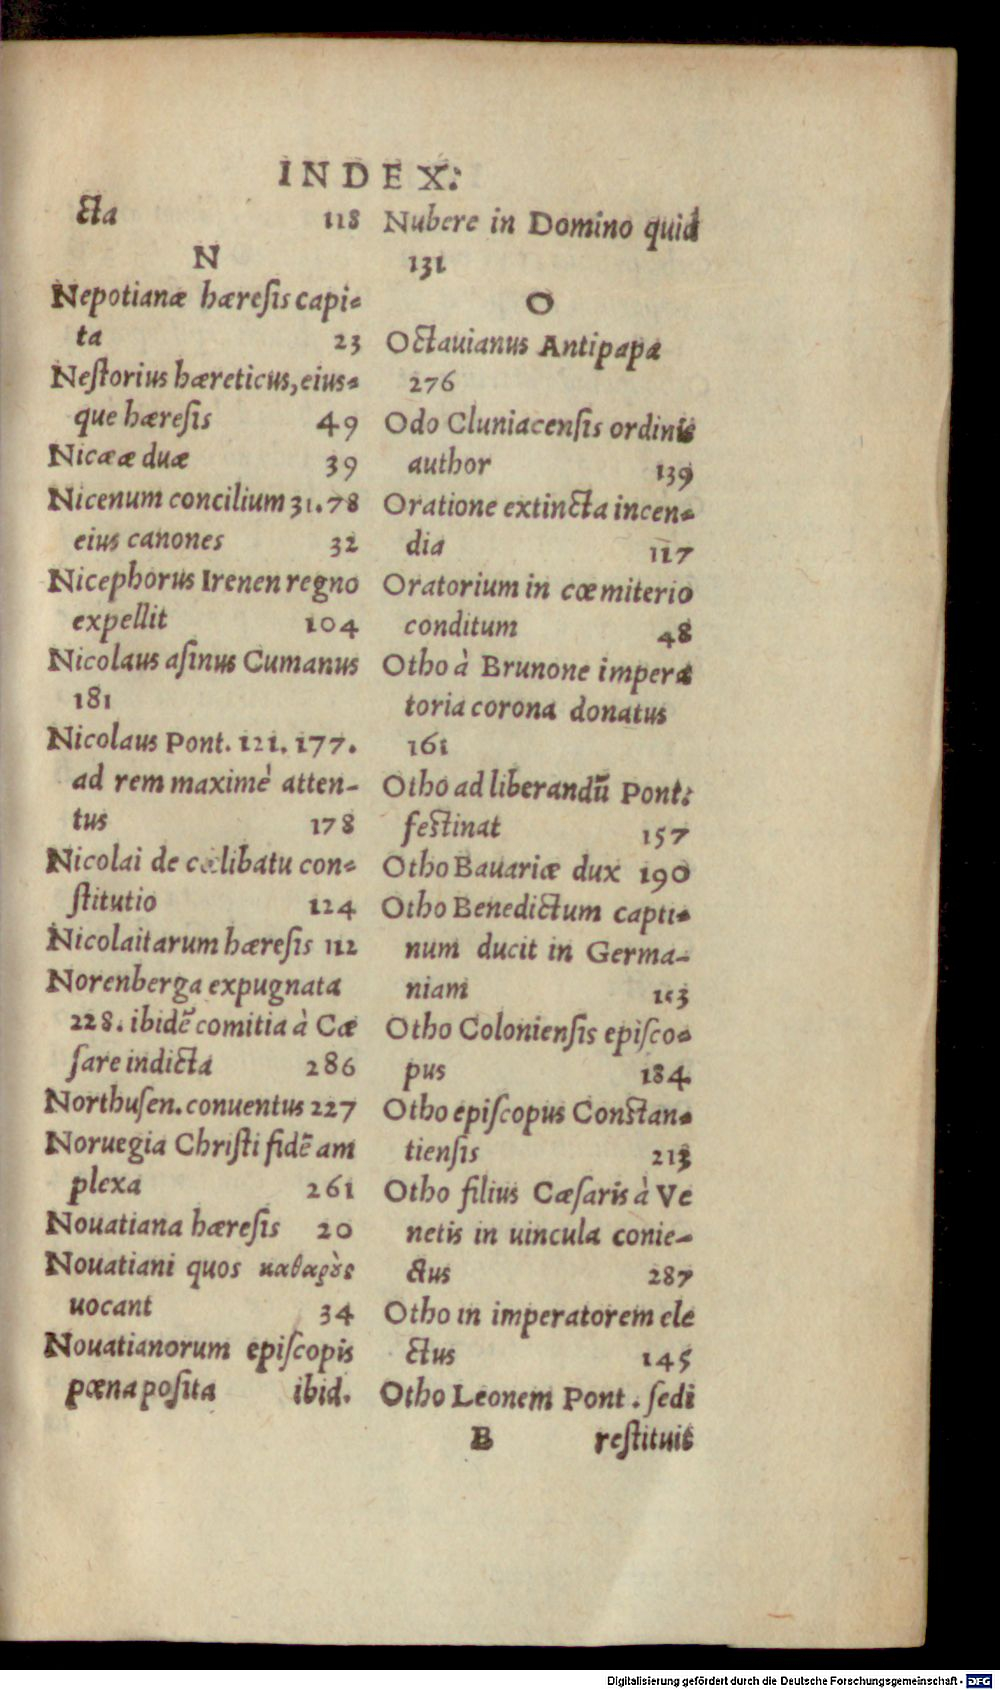 INDEX.
cta 118
N
Nepotianæ hæresis capi-
ta 23
Nestorius hæreticus, eius-
que hæresis 49
Nicææ duæ 39
Nicenum concilium 31. 78
eius canones 32
Nicephorus Irenen regno
expellit 104
Nicolaus asinus Cumanus
181
Nicolaus Pont. 121. 177.
ad rem maximè atten-
tus 178
Nicolai de cælibatu con-
stitutio 124
Nicolaitarum hæresis 112
Norenberga expugnata
228. ibidē comitia à Cæ
sare indicta 286
Northusen. conuentus 227
Noruegia Christi fidē am
plexa 261
Nouatiana hæresis 20
Nouatiani quos καθαροὺς
uocant 34
Nouatianorum episcopis
pœna posita ibid.
Nubere in Domino quid
131
O
Octauianus Antipapa
276
Odo Cluniacensis ordinis
author 139
Oratione extincta incen-
dia 117
Oratorium in cœmiterio
conditum 48
Otho à Brunone impera
toria corona donatus
161
Otho ad liberandū Pont.
festinat 157
Otho Bauariæ dux 190
Otho Benedictum capti-
num ducit in Germa-
niam 153
Otho Coloniensis episco-
pus 184
Otho episcopus Constan-
tiensis 213
Otho filius Cæsaris à Ve
netis in uincula conie-
ctus 287
Otho in imperatorem ele
ctus 145
Otho Leonem Pont. sedi
B restituit
Digitalisierung gefördert durch die Deutsche Forschungsgemeinschaft - DFG